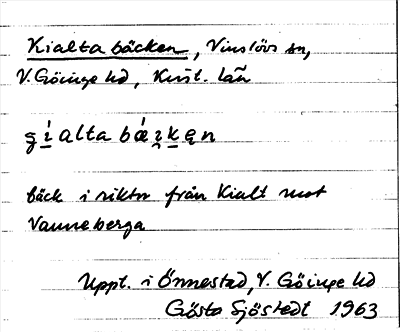 Kialta bäcken, Vinslövs sn,
V. Göinge hd, Krist. län
bäck i riktn från Kialt mot
Vanneberga
Uppt. i Önnestad, V. Göinge hd
Gösta Sjöstedt 1963